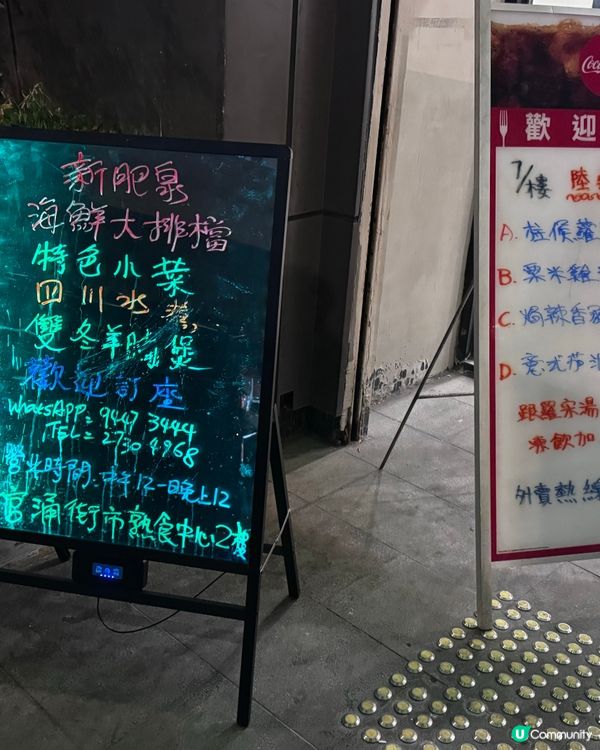 新肥泉
海鮮大排檔
特色小菜
四川水煮
雙冬羊腩煲
歡迎訂座
WhatsApp: 9447 3444
TEL: 2730 4968
營業時間:中午12-晚上12
官涌街市熟食中心2樓
Coca
歡迎
7/樓 陸
A. 柱侯蘿
B. 粟米雞
C. 焗辣香
D. 意式茄
跟羅宋湯
凍飲加
外賣熱線
U Community